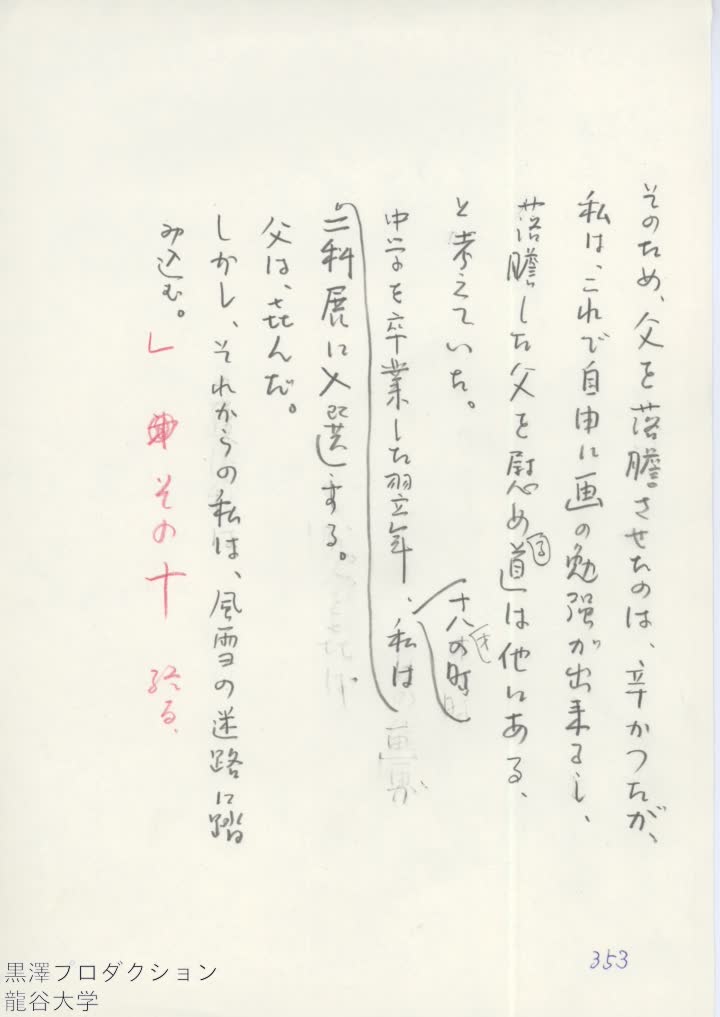 そのため、父を落膽させたのは、辛かつたが、
私は、これで自由に画の勉強が出来るし、
落膽した父を慰める道は他にある、
と考えていた。
十八才の時
中学を卒業した翌年、私は
二科展に入選する。
父は、㐂んだ。
しかし、それからの私は、風雪の迷路に踏
み込む。」
その十 終る、
353
黒澤プロダクション
龍谷大学